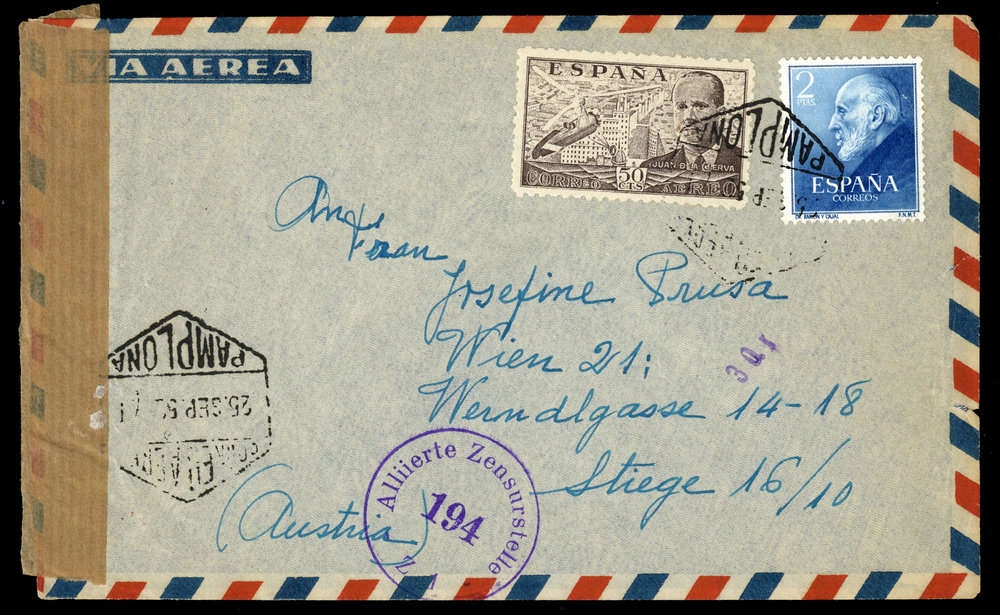 VIA AEREA
ESPAÑA
JUAN DE LA CIERVA
50
CTS
CORREO AEREO
2
PTAS
ESPAÑA
CORREOS
F.N.M.T.
PAMPLONA
An
Frau
Josefine Prusa
Wien 21;
Werndlgasse 14-18
Stiege 16/10
(Austria)
301
PAMPLONA
25.SEP.5
Alliierte Zensurstelle
194